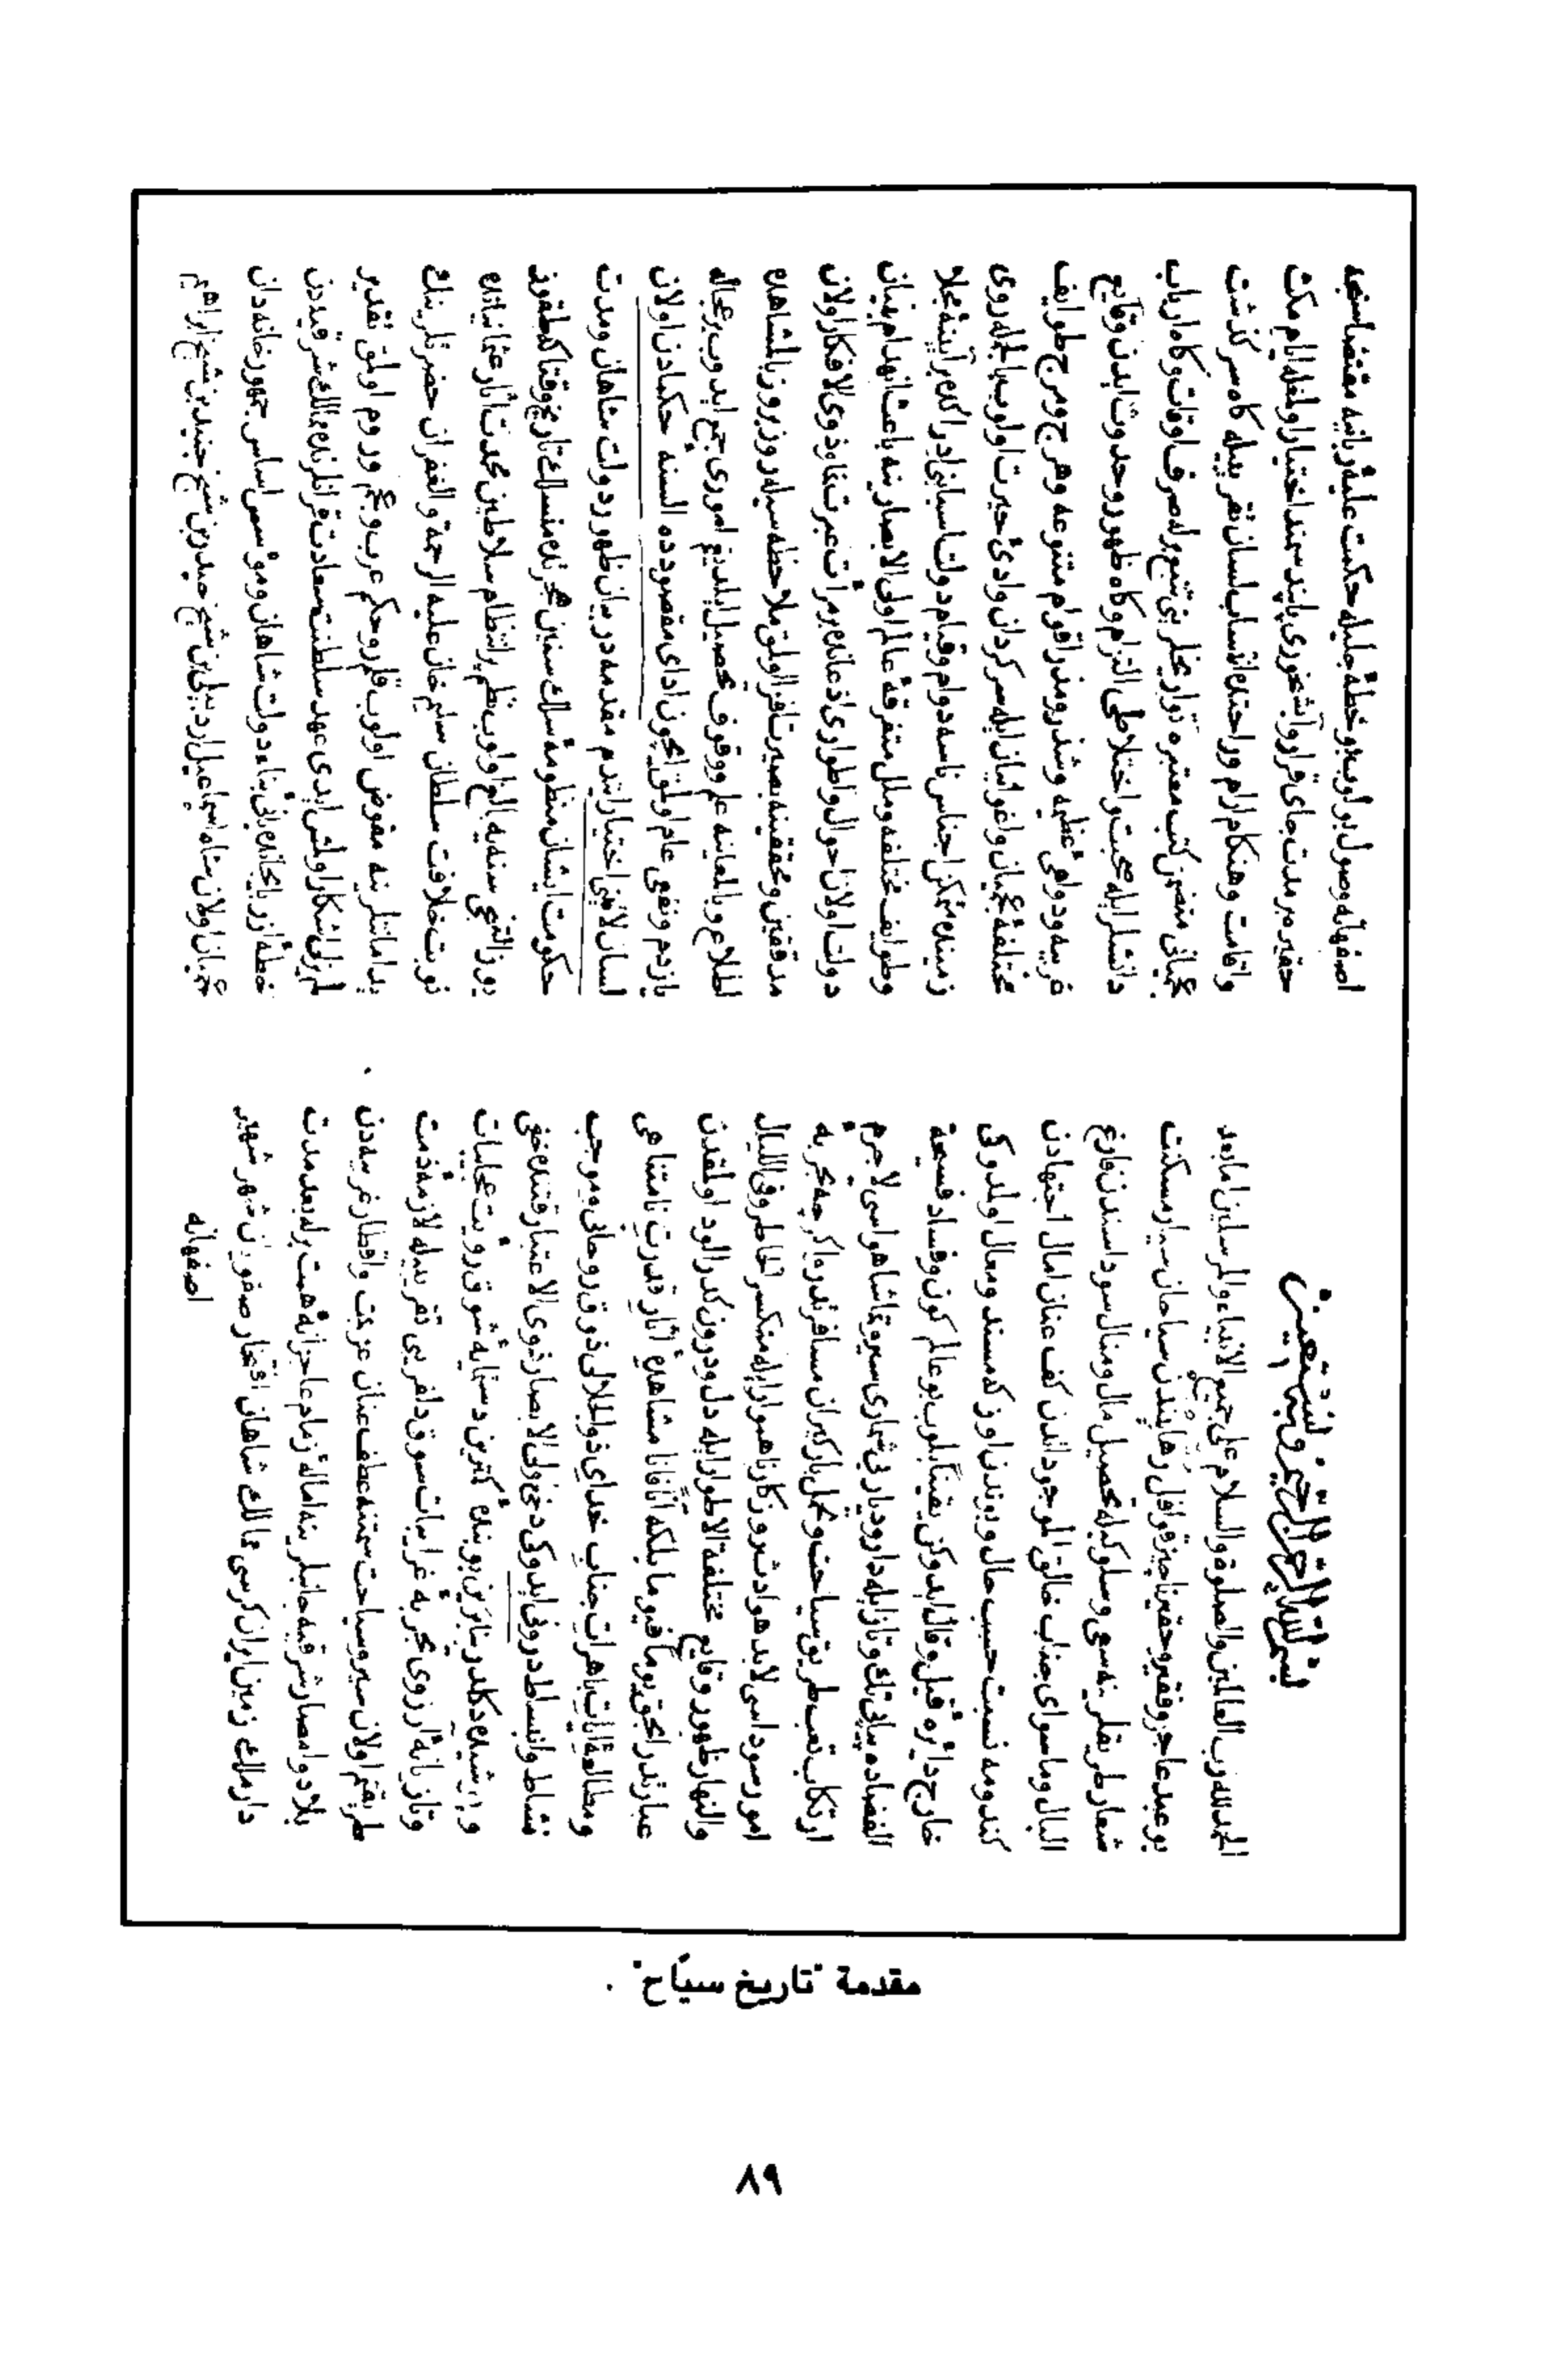 بسم الله الرحمن الرحيم وبه نستعين
الحمد لله رب العالمين والصلوة والسلام على جميع الانبياء والمرسلين اما بعد
بو عبد عاجز وفقير وحقير ناچيز قوافل رهابيندن سياحان سيار مسكنت
شعار طريقلرينه سعى وسلوكيله تحصيل مال ومنال سوداسندن فارغ
البال وما سواى جناب خالق الموجوداتدن كف عنان امال اجتهادن
كند ومه نسبت حسب حال وبوندن اوزكه مسند ومعال اولمدوكى
خارج دايرهٔ قيل وقال ايدوكن يقينا بلوب بو عالم كون وفساد فسيحة
الفضاده تك وتاز ايله دار وديار بى شمارى سير وتماشا هواسى لا جرم
ارتكاب تعب طريق سياحت وتحمل بار كيران مسافرتدر اكرچه تجربه
امور سوداسى لابد هوادث روزكار ناهموار ايله منكسر الخاطر وفى الليال
والنهار ظهور وقايع مختلفة الاطوار ايله دل ودرون كدر الود اولمقدن
عبارتدر انجق يوما فيوما بلكه آنا فانا مشاهدهٔ اثار قدرت نامتناهى
ومطالعهٔ ايات باهرات جناب خداى ذو الجلال ذوق روحانى وموجب
نشاط وانبساط درونى ايدوكى دخى اولى الابصار ذوى الاعتبار قتنده خفى
وپوشيده دكلدر بناء برين بو بندهٔ كمترين دستمايهٔ شوق رؤيت عجايبات
وتازيانهٔ آرزوى تجربهٔ غرايبات سوق دلفريبى تقريبيله لازمهٔ ذمت
طريقتم اولان سير وسياحت سمتنه عطف عنان عزيمت واقطار غربيه دن
بلاد وامصار شرقيه جانبلرينه امالهٔ زمام عاجزانهٔ همت برله بعد مدت
دار ملك زمين ايران كرسى ممالك شاهان افتخار صفويان شهر شهير
اصفهانه
اصفهانه وصول بولوب بو خطهٔ جليله حكمت عليهٔ ربانيه مقتضاسنجه
حقيره بر مدت جاى قرار وآبشخورى پايبند سمند اختيار اولمغله ايام مكث
واقامت وهنكام ارام وراحتده انتساب لسان تقريبيله كاه سر كذشت
عجمياني متضمن كتب معتبره تواريخلريني تتبع برله صرف اوقات وكاه ارباب
دانشلر ايله صحبت واختلاطى التزام وكاه ظهور وحدوث ايدن وقايع
غريبه ودواهى عظيمه وشذر ومذر اقوام متنوعه وهرج ومرج طوايف
مختلفهٔ عجميان واغوانيان ايله سر كردان وادئ حيرت اولوب بالجمله روى
زمينده متمكن اجناس ناسه دوام وقيام دولت اسبابنى ادراكده بر آيينهٔ مجلا
وطوايف مختلفه وملل متفرقهٔ عالم اولى الابصارينه باعث انهدام بنيان
دولت اولان احوال واطوارى اذعانده بر مرآت عبرت نما وذوى الافكار اولان
مدققين ومحققينه بصيرت افزا اولمق ملاحظه سيله روز بروز بالمشاهده
اطلاع وبالمعاينه علم ووقوف تحصيل ايلديكم امورى جمع ايدوب بر عجاله
يازدم ونفعى عام اولمق ايچون اداى مقصودده السنهٔ حكمادن اولان
لسان لاتينى اختيار ايتدم مقدمه در بيان ظهور دولت شاهان ومدت
حكومت ايشان منظومهٔ سلك سنين هجريه ده منسلك تاريخ وقتا كه طقوز
يوز التنجى سنه يه بالغ اولوب نظم پر انتظام سلاطين محمدت اثار عثمانيانده
نوبت خلافت سلطان سليم خان عليه الرحمة والغفران حضرتلرينك
يد امانتلرينه مفوض اولوب قلمرو حكم عرب وعجم وروم اولمق تقدير
لم يزلى اشكار اولمش ايدى عهد سلطنت سعادت قرانلرنده ممالك شرقيه دن
خطهٔ ازربايجانده بانئ بناء دولت شاهان ومؤسس اساس جمهور خانه دان
عجميان اولان شاه اسماعيل اردبيلى بن شيخ حيدر بن شيخ جنيد بن شيخ ابراهيم
مقدمة تاريخ سياح.
٨٩